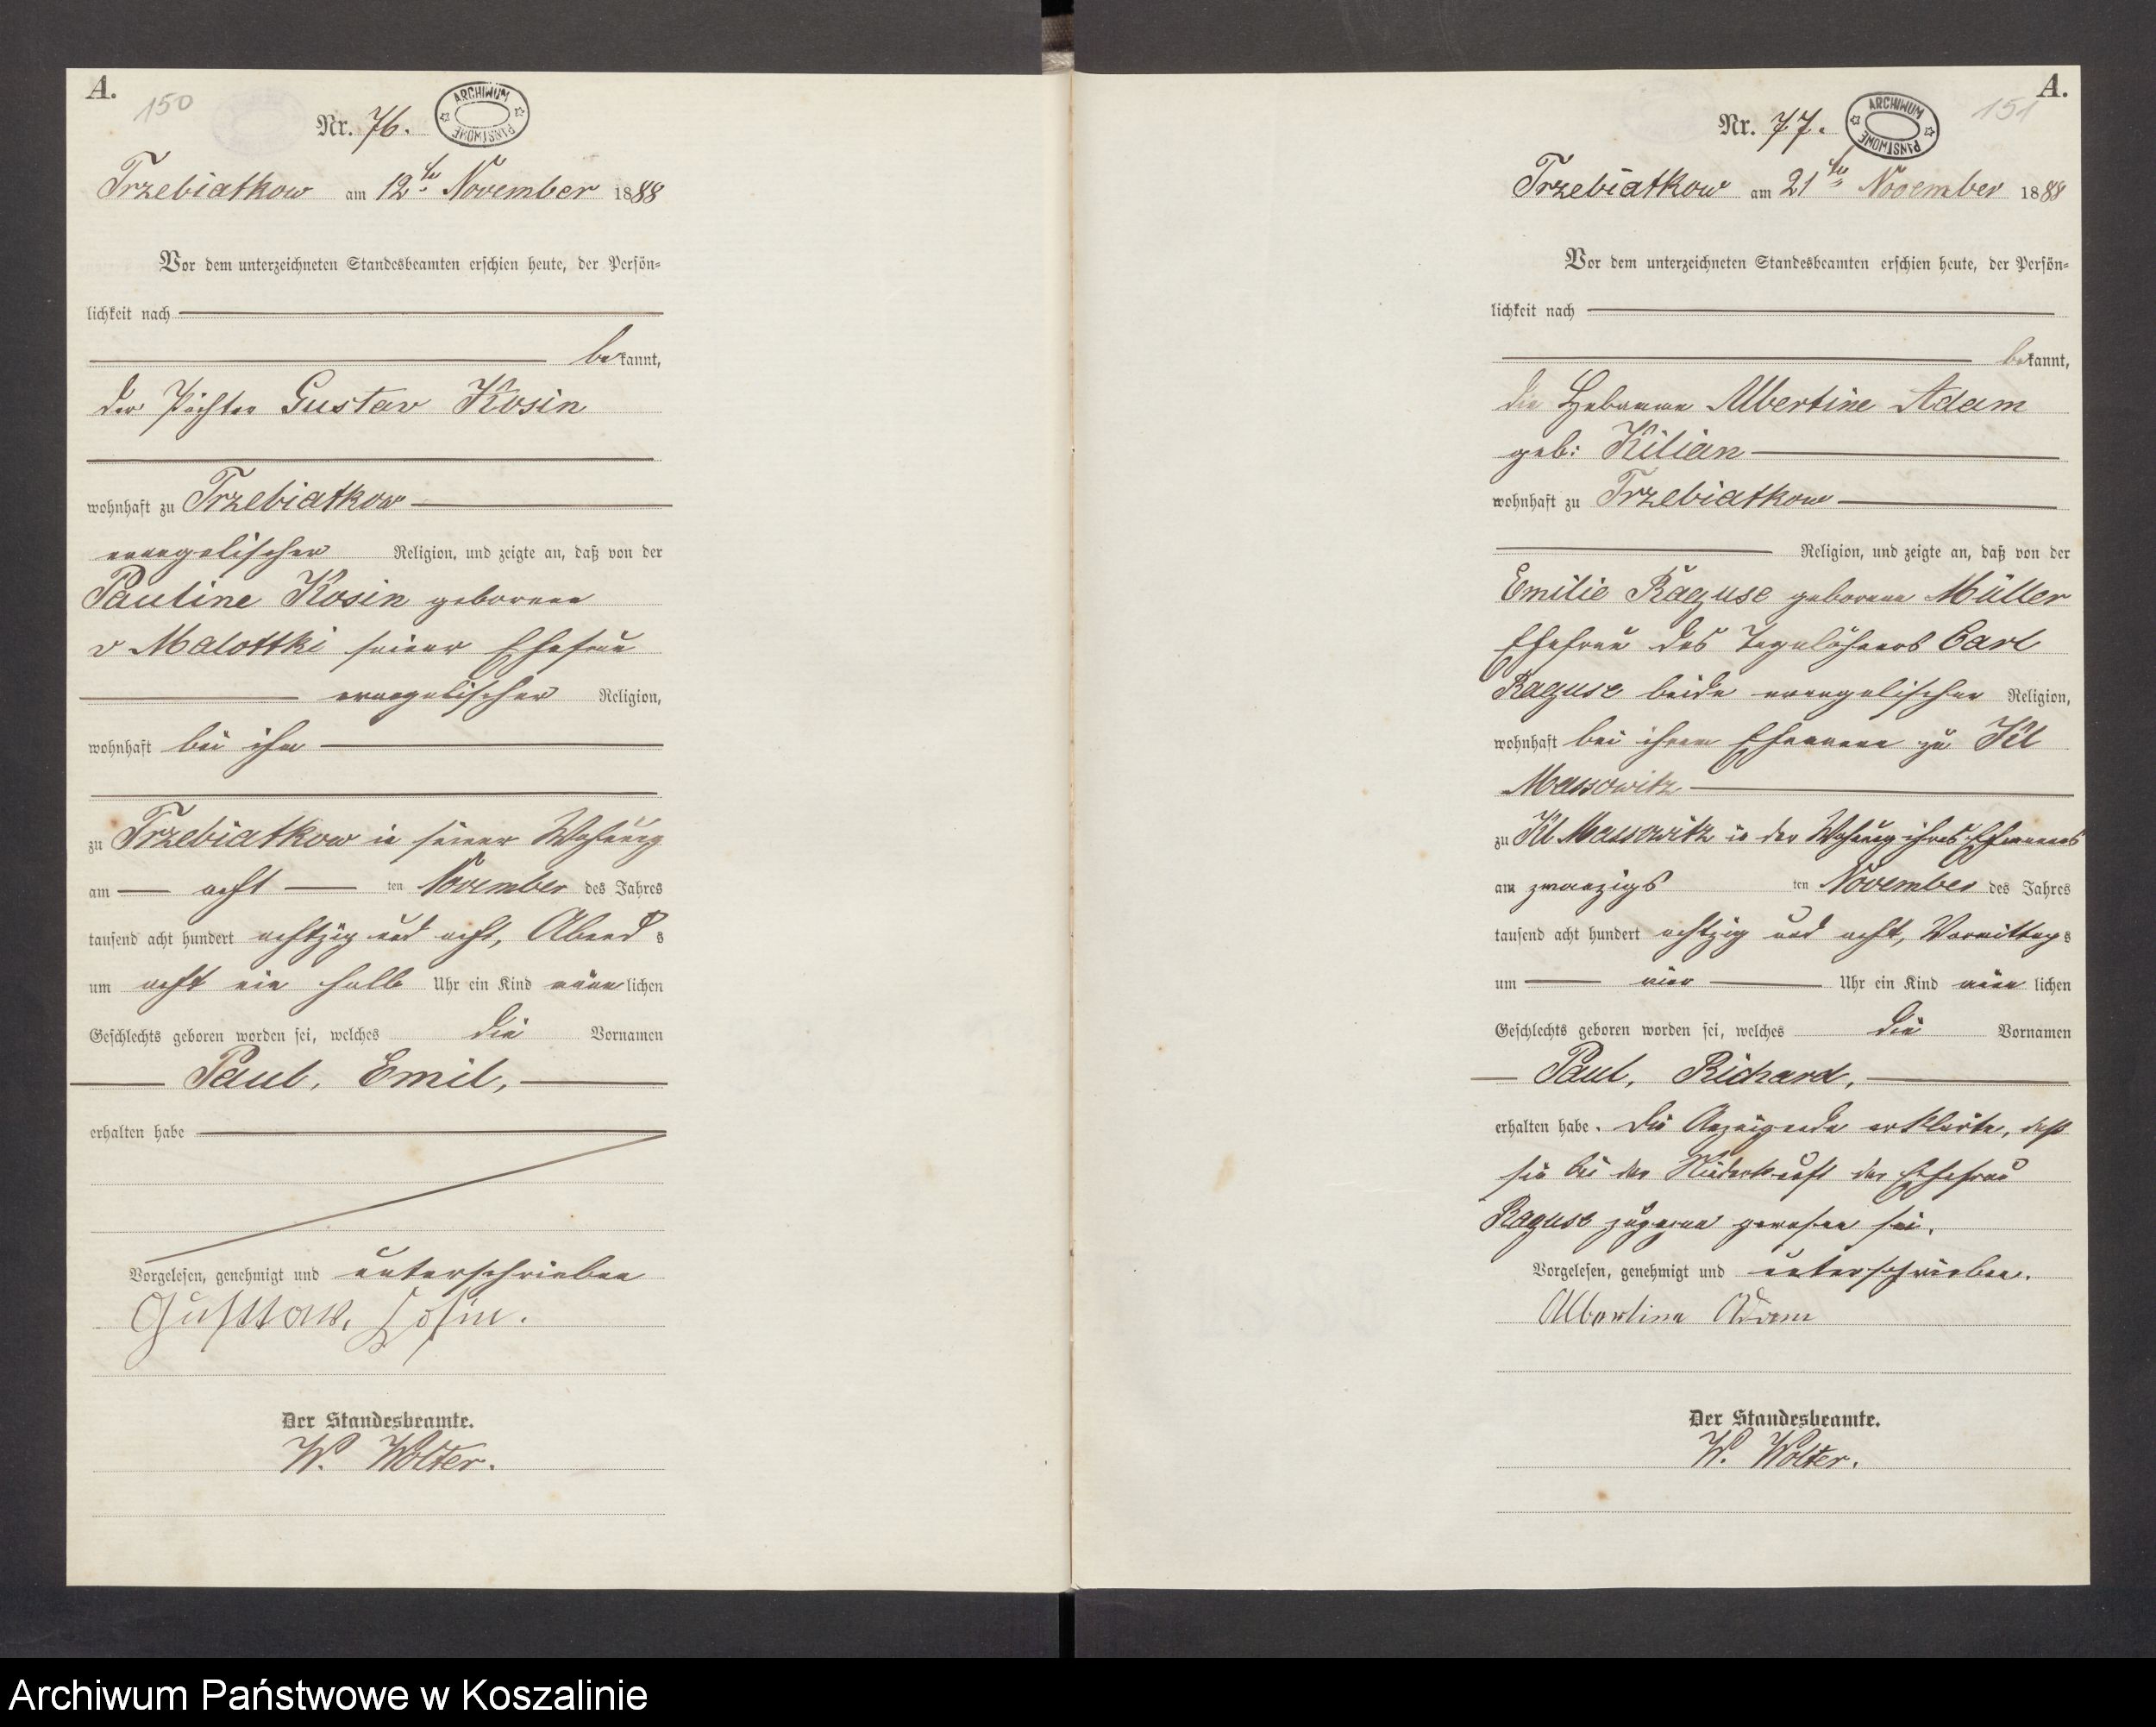 A.
150
Nr. 76.
ARCHIWUM PAŃSTWOWE
Trzebiatkow am 12ten November 1888
Vor dem unterzeichneten Standesbeamten erschien heute, der Persön=
lichkeit nach
bekannt,
der Pächter Gustav Kosin
wohnhaft zu Trzebiatkow
evangelischer Religion, und zeigte an, daß von der
Pauline Kosin geborene
v Malottki seiner Ehefrau
evangelischer Religion,
wohnhaft bei ihm
zu Trzebiatkow in seiner Wohnung
am acht ten November des Jahres
tausend acht hundert achtzig und acht, Abends
um acht ein halb Uhr ein Kind männlichen
Geschlechts geboren worden sei, welches die Vornamen
Paul, Emil,
erhalten habe
Vorgelesen, genehmigt und unterschrieben
Gustav Kosin.
Der Standesbeamte.
W. Wolter.
A.
151
Nr. 77.
ARCHIWUM PAŃSTWOWE
Trzebiatkow am 21ten November 1888
Vor dem unterzeichneten Standesbeamten erschien heute, der Persön=
lichkeit nach
bekannt,
die Hebamme Albertine Adam
geb: Kilian
wohnhaft zu Trzebiatkow
Religion, und zeigte an, daß von der
Emilie Raguse geborene Müller
Ehefrau des Tagelöhners Carl
Raguse beide evangelischer Religion,
wohnhaft bei ihrem Ehemann zu Kl
Massowitz
zu Kl Massowitz in der Wohnung ihres Ehemanns
am zwanzigs ten November des Jahres
tausend acht hundert achtzig und acht, Vormittags
um vier Uhr ein Kind männlichen
Geschlechts geboren worden sei, welches die Vornamen
Paul, Richard,
erhalten habe. Die Anzeigende erklärte, daß
sie bei der Niederkunft der Ehefrau
Raguse zugegen gewesen sei.
Vorgelesen, genehmigt und unterschrieben.
Albertine Adam
Der Standesbeamte.
W. Wolter.
Archiwum Państwowe w Koszalinie